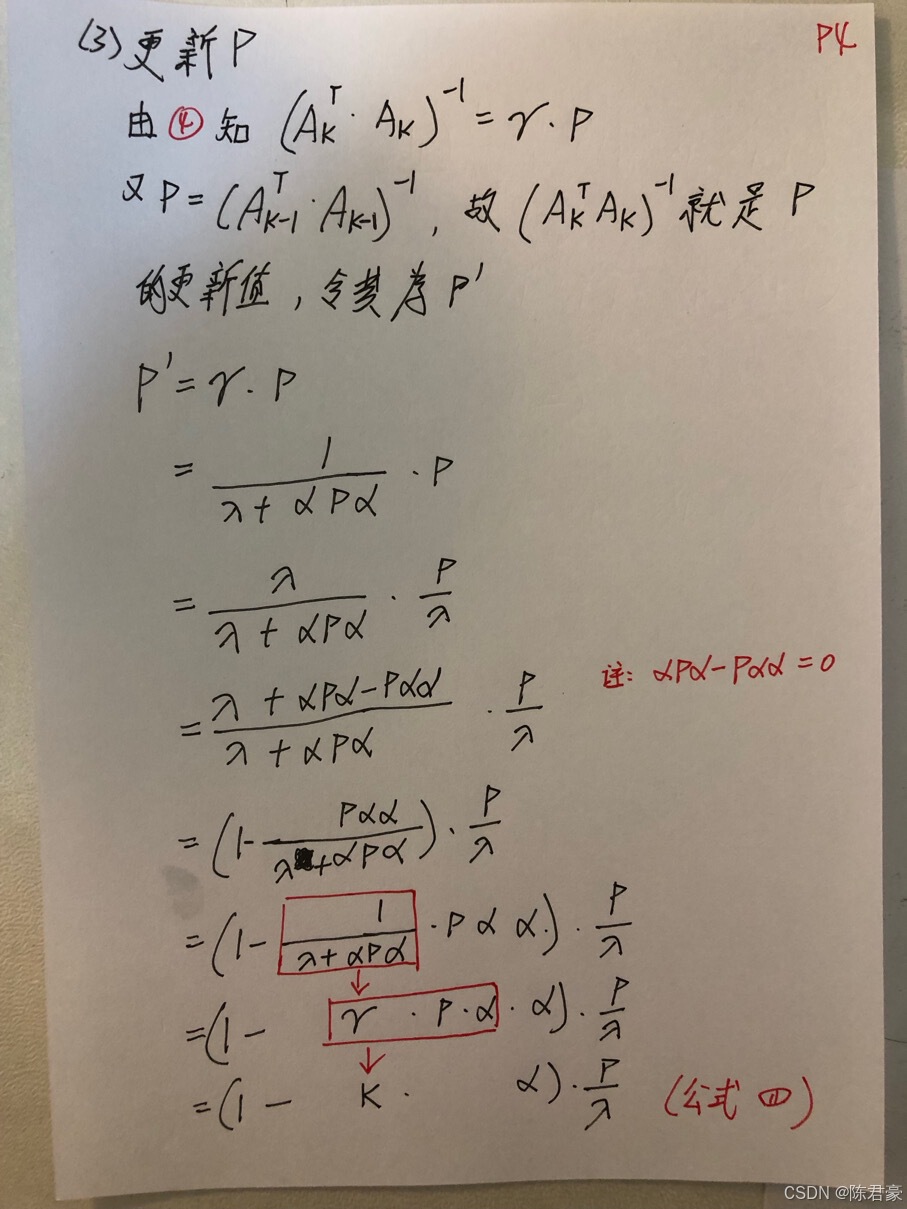 (3) 更新P
P4
由④知 (A_K^T · A_K)^{-1} = γ · P
又 P = (A_{K-1}^T · A_{K-1})^{-1}, 故 (A_K^T A_K)^{-1} 就是 P
的更新值, 令其为 P'
P' = γ · P
= \frac{1}{λ + αPα} · P
= \frac{λ}{λ + αPα} · \frac{P}{λ}
= \frac{λ + αPα - Pαα}{λ + αPα} · \frac{P}{λ}
注: αPα - Pαα = 0
= (1 - \frac{Pαα}{λ + αPα}) · \frac{P}{λ}
= (1 - \frac{1}{λ + αPα} · P α α) · \frac{P}{λ}
= (1 - γ · P · α · α) · \frac{P}{λ}
= (1 - K · α) · \frac{P}{λ} (公式四)
CSDN @陈君豪